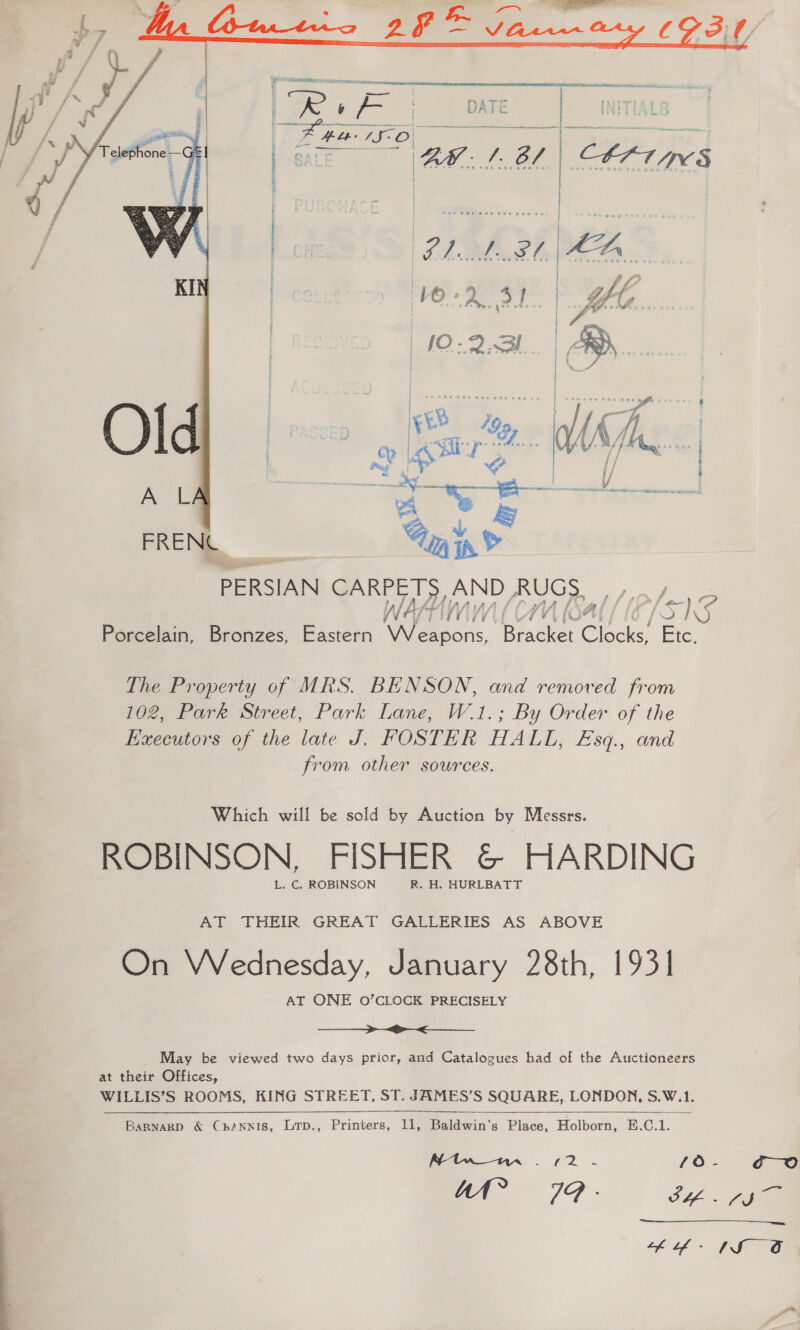 28th January 1931
R & F DATE INITIALS
£44-15-0
SALE 28.1.31
PURCHASE
31.1.31
10.2.31
RECEIVED 10.2.31
ACCESSED
PASSED
FEB 1931
Telephone—GE
W
KIN
Old
A LA
FRENC
PERSIAN CARPETS, AND RUGS,
Porcelain, Bronzes, Eastern Weapons, Bracket Clocks, Etc.
The Property of MRS. BENSON, and removed from
102, Park Street, Park Lane, W.1.; By Order of the
Executors of the late J. FOSTER HALL, Esq., and
from other sources.
Which will be sold by Auction by Messrs.
ROBINSON, FISHER & HARDING
L. C. ROBINSON R. H. HURLBATT
AT THEIR GREAT GALLERIES AS ABOVE
On Wednesday, January 28th, 1931
AT ONE O'CLOCK PRECISELY
May be viewed two days prior, and Catalogues had of the Auctioneers
at their Offices,
WILLIS'S ROOMS, KING STREET, ST. JAMES'S SQUARE, LONDON, S.W.1.
BARNARD & CHANNIS, LTD., Printers, 11, Baldwin's Place, Holborn, E.C.1.
12 - 10 - 0 0
79 - 34 - 15
44 - 15 0